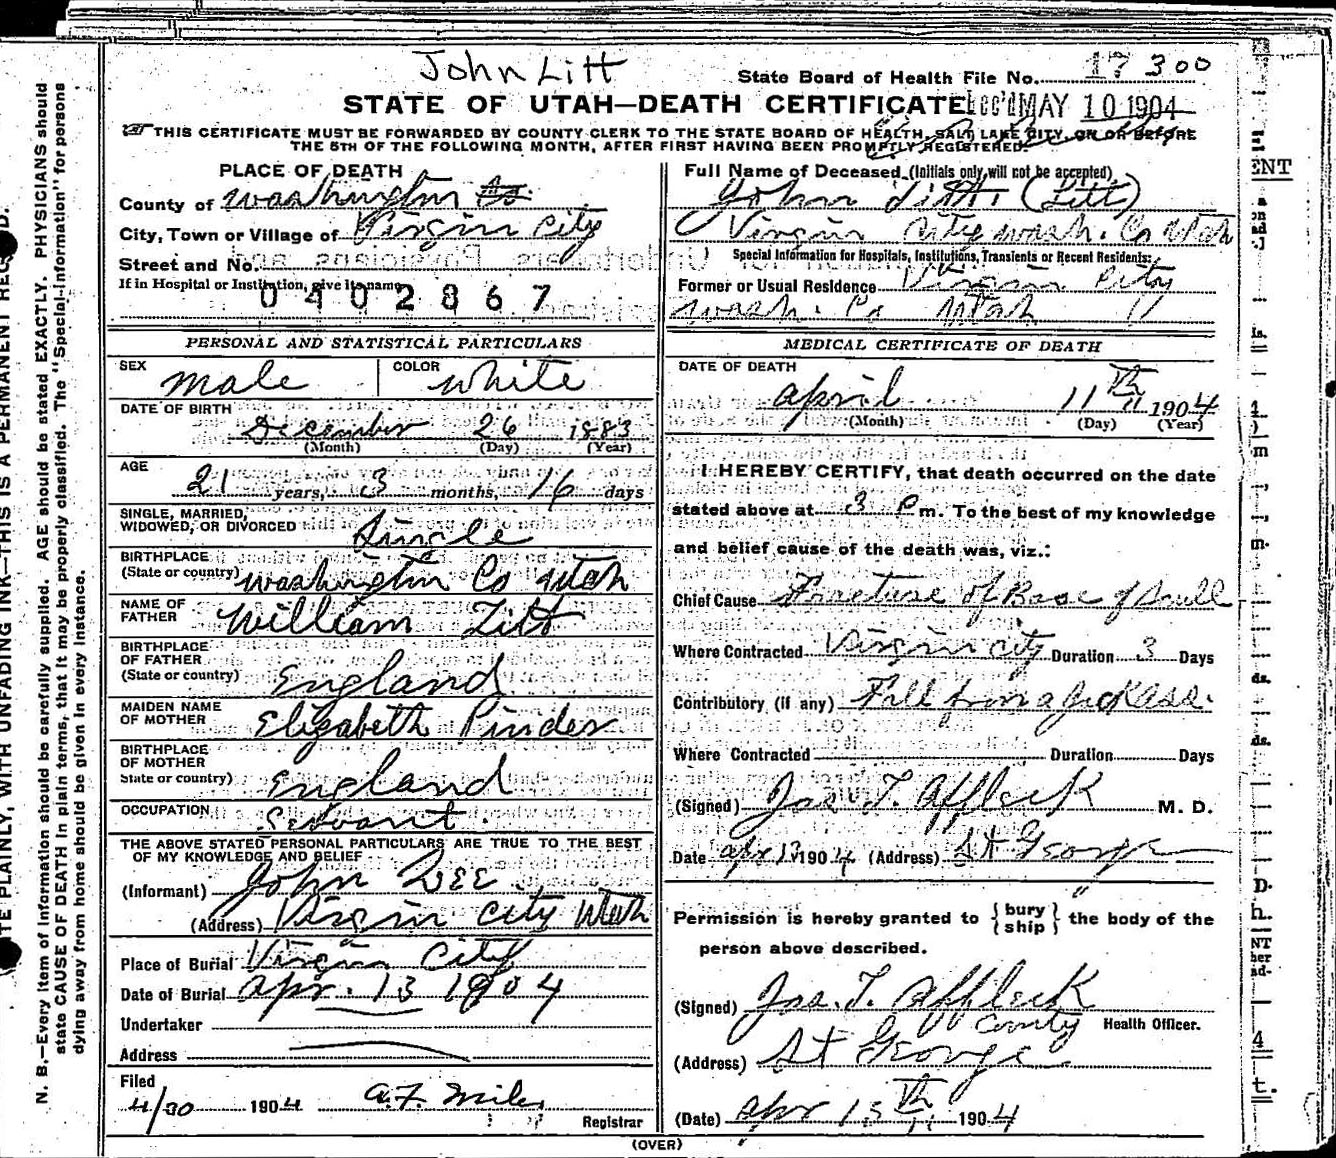 John Litt
State Board of Health File No. 17 300
STATE OF UTAH—DEATH CERTIFICATE Rec'd MAY 10 1904
THIS CERTIFICATE MUST BE FORWARDED BY COUNTY CLERK TO THE STATE BOARD OF HEALTH, SALT LAKE CITY, ON OR BEFORE
THE 5TH OF THE FOLLOWING MONTH, AFTER FIRST HAVING BEEN PROMPTLY REGISTERED.
PLACE OF DEATH
County of Washington Co.
City, Town or Village of Virgin City
Street and No.
If in Hospital or Institution, give its name
0402867
PERSONAL AND STATISTICAL PARTICULARS
SEX male COLOR white
DATE OF BIRTH
December 26 1883
(Month) (Day) (Year)
AGE
21 years, 3 months, 16 days
SINGLE, MARRIED,
WIDOWED, OR DIVORCED Single
BIRTHPLACE
(State or country) Washington Co Utah
NAME OF
FATHER William Litt
BIRTHPLACE
OF FATHER
(State or country) England
MAIDEN NAME
OF MOTHER Elizabeth Pinder
BIRTHPLACE
OF MOTHER
State or country) England
OCCUPATION Servant.
THE ABOVE STATED PERSONAL PARTICULARS ARE TRUE TO THE BEST
OF MY KNOWLEDGE AND BELIEF
(Informant) John Dee
(Address) Virgin City Utah
Place of Burial Virgin City
Date of Burial apr. 13 1904
Undertaker
Address
Filed
4/30 1904 A.F. Miles
Registrar
Full Name of Deceased (Initials only will not be accepted)
John Litt. (Litt)
Virgin City wash. Co Utah
Special Information for Hospitals, Institutions, Transients or Recent Residents:
Former or Usual Residence Virgin City
Wash. Co Utah
MEDICAL CERTIFICATE OF DEATH
DATE OF DEATH
april 11th 1904
(Month) (Day) (Year)
I HEREBY CERTIFY, that death occurred on the date
stated above at 3 P m. To the best of my knowledge
and belief cause of the death was, viz.:
Chief Cause Fracture of Base of Scull
Where Contracted Virgin city Duration 3 Days
Contributory (if any) Fall from a Jackass.
Where Contracted Duration Days
(Signed) Jas. T. Affleck M. D.
Date apr 13 1904 (Address) St George
Permission is hereby granted to { bury
ship } the body of the
person above described.
(Signed) Jas. T. Affleck
County Health Officer.
(Address) St George
(Date) apr 15th 1904
(OVER)
N. B.—Every item of information should be carefully supplied. AGE should be stated EXACTLY. PHYSICIANS should
state CAUSE OF DEATH in plain terms, that it may be properly classified. The "Special Information" for persons
dying away from home should be given in every instance.
PLAINLY, WITH UNFADING INK—THIS IS A PERMANENT